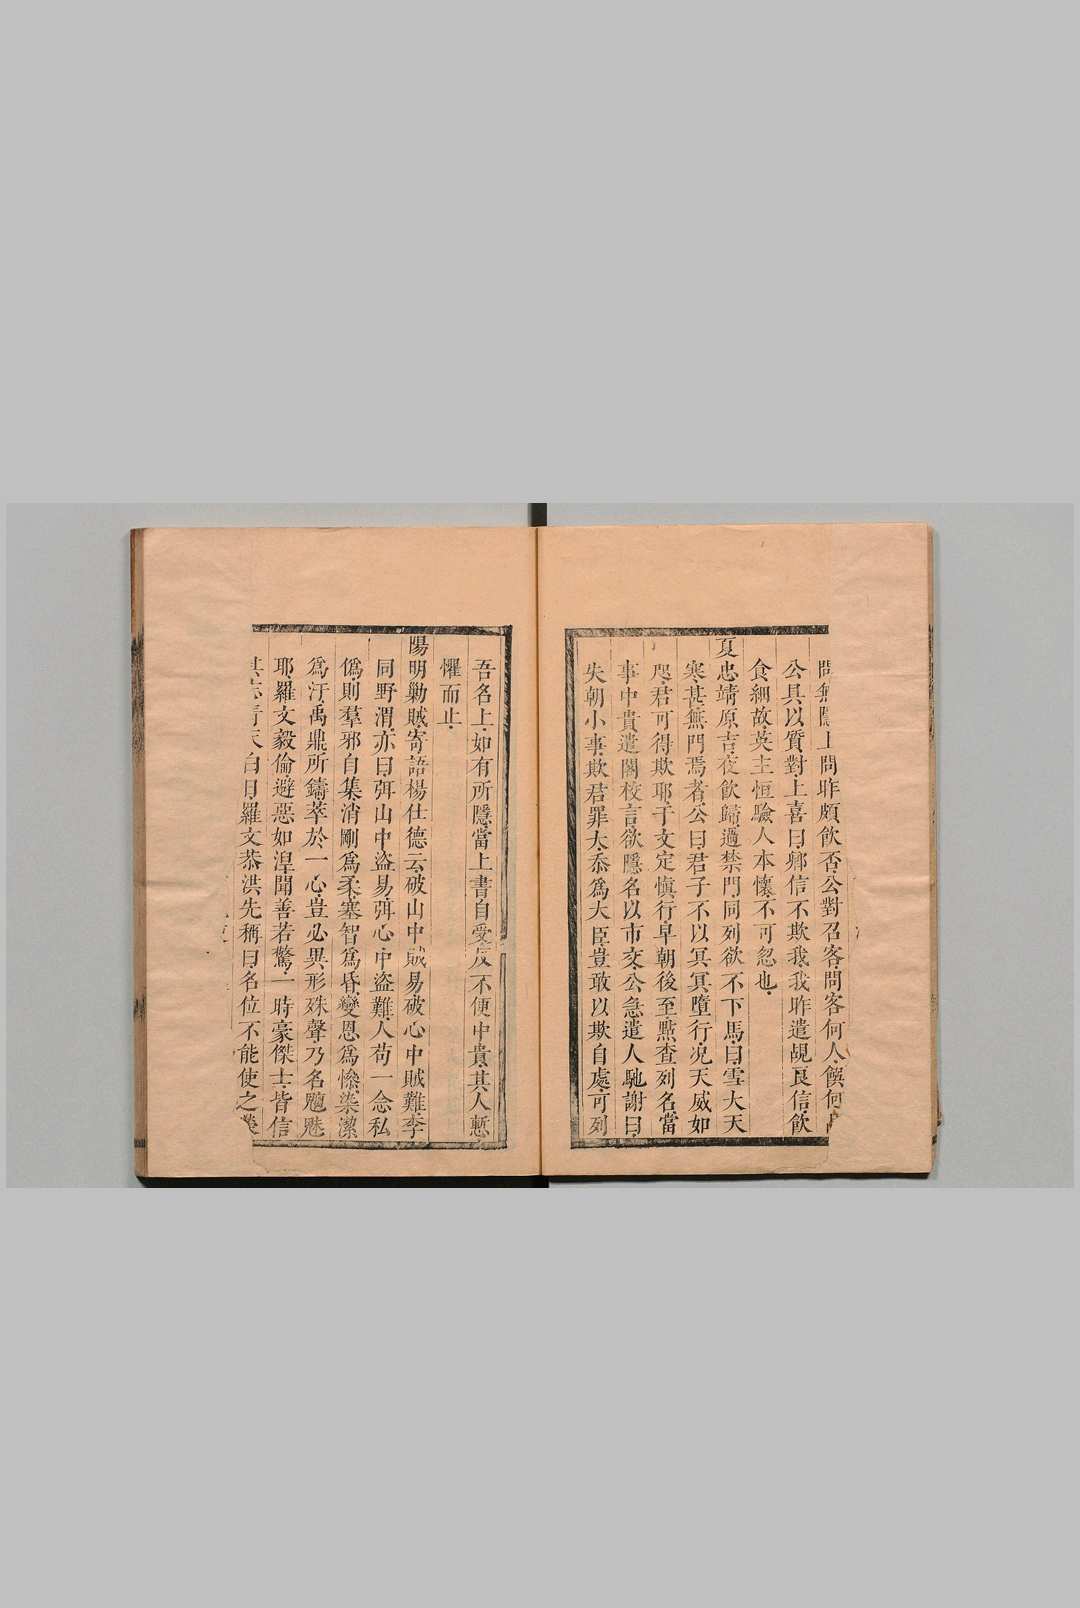 問無隱上問昨頗飲否公對召客問客何人饌何
公具以質對上喜曰卿信不欺我我昨遣覘良信飲
食細故英主恒驗人本懷不可忽也
夏忠靖原吉夜飲歸過禁門同列欲不下馬曰雪大天
寒甚無門焉者公曰君子不以冥冥墮行况天威如
咫君可得欺耶于文定慎行早朝後至㸃查列名當
事中貴遣閣校言欲隱名以市交公急遣人馳謝曰
失朝小事欺君罪大忝爲大臣豈敢以欺自處可列
吾名上如有所隱當上書自受反不便中貴其人慙
懼而止
陽明勦賊寄語楊仕德云破山中賊易破心中賊難李
同野渭亦曰弭山中盜易弭心中盜難人苟一念私
僞則羣邪自集消剛爲柔塞智爲昏變恩爲慘染潔
爲汙禹鼎所鑄萃於一心豈必異形殊聲乃名魍魎
耶羅文毅倫避惡如涅聞善若驚一時豪傑士皆信
其 青天白日羅文恭洪先稱曰名位不能使之